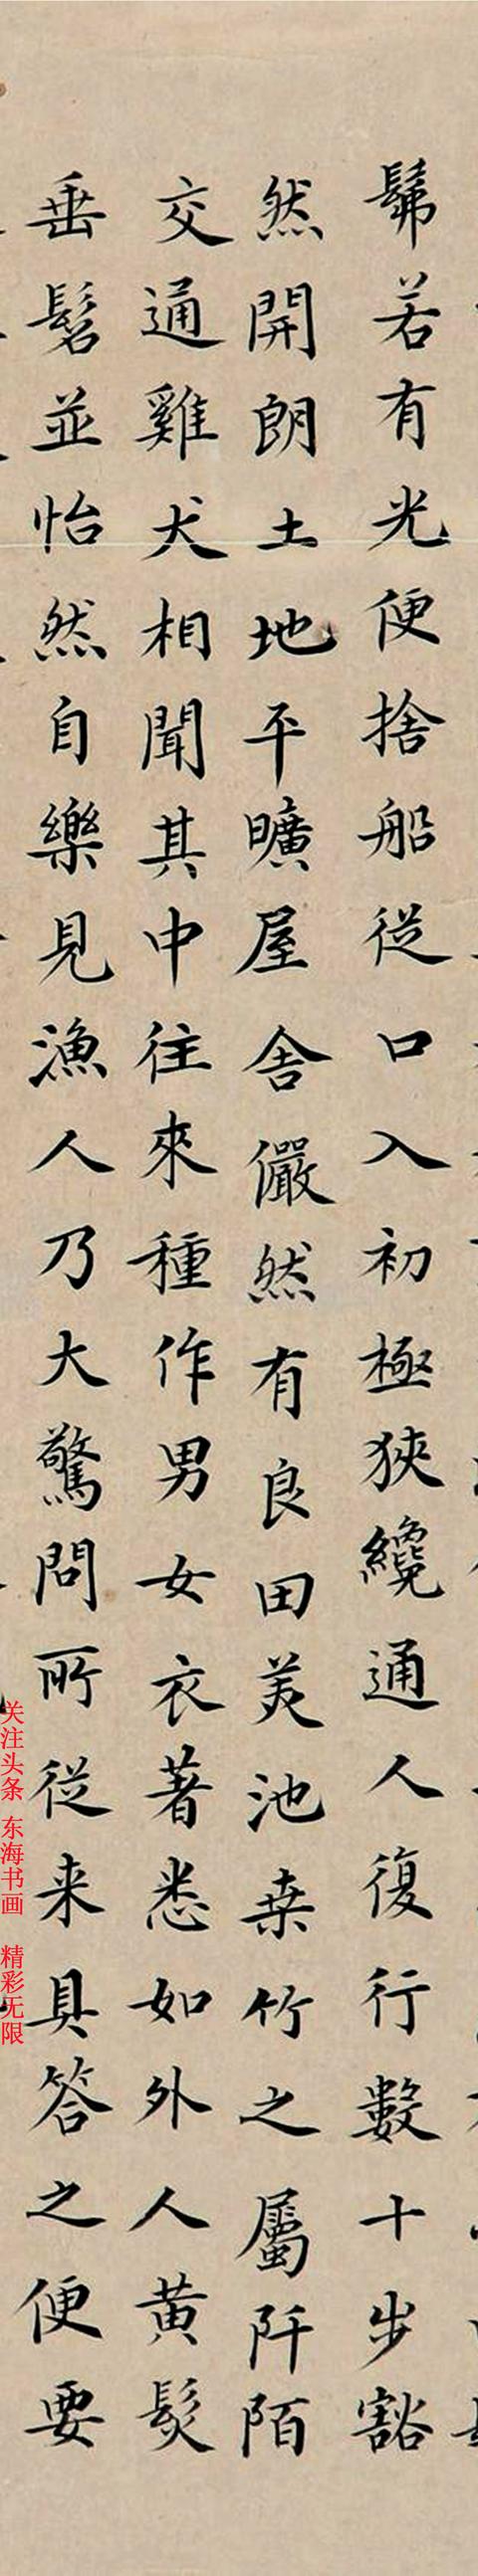 髴若有光便捨船從口入初極狹纔通人復行數十步豁
然開朗土地平曠屋舍儼然有良田美池桒竹之屬阡陌
交通雞犬相聞其中往來種作男女衣著悉如外人黄髮
垂髫並怡然自樂見漁人乃大驚問所從来具答之便要
关注头条 东海书画 精彩无限